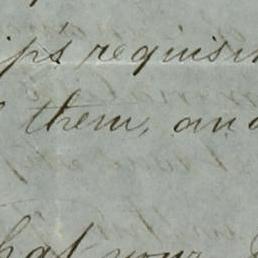 ip's requisi
them, and
hat your